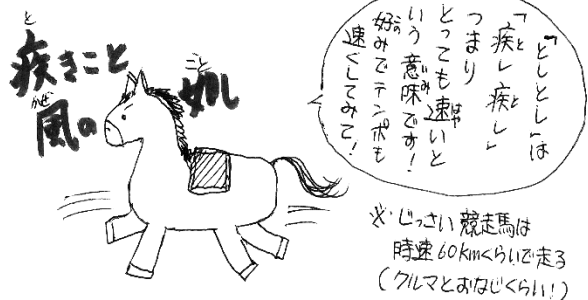 疾きこと
風の
如し
「としとし」は
「疾し疾し」
つまり
とっても速いと
いう意味です！
好みでテンポも
速くしてみて！
※じっさい競走馬は
時速60kmくらいで走る
（クルマとおなじくらい！）